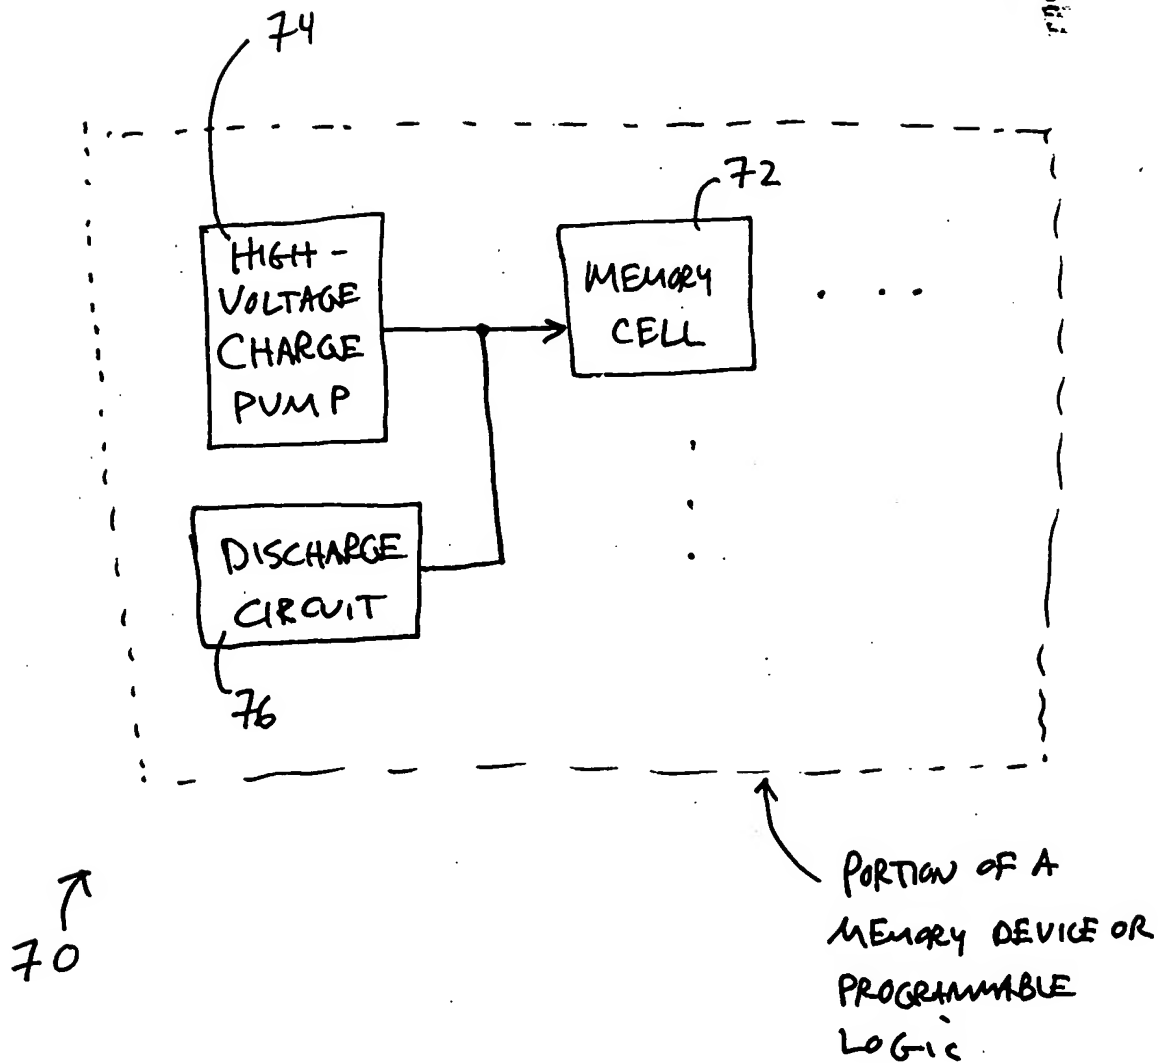 74
72
HIGH-
VOLTAGE
CHARGE
PUMP
MEMORY
CELL
. . .
DISCHARGE
CIRCUIT
76
70
PORTION OF A
MEMORY DEVICE OR
PROGRAMMABLE
LOGIC